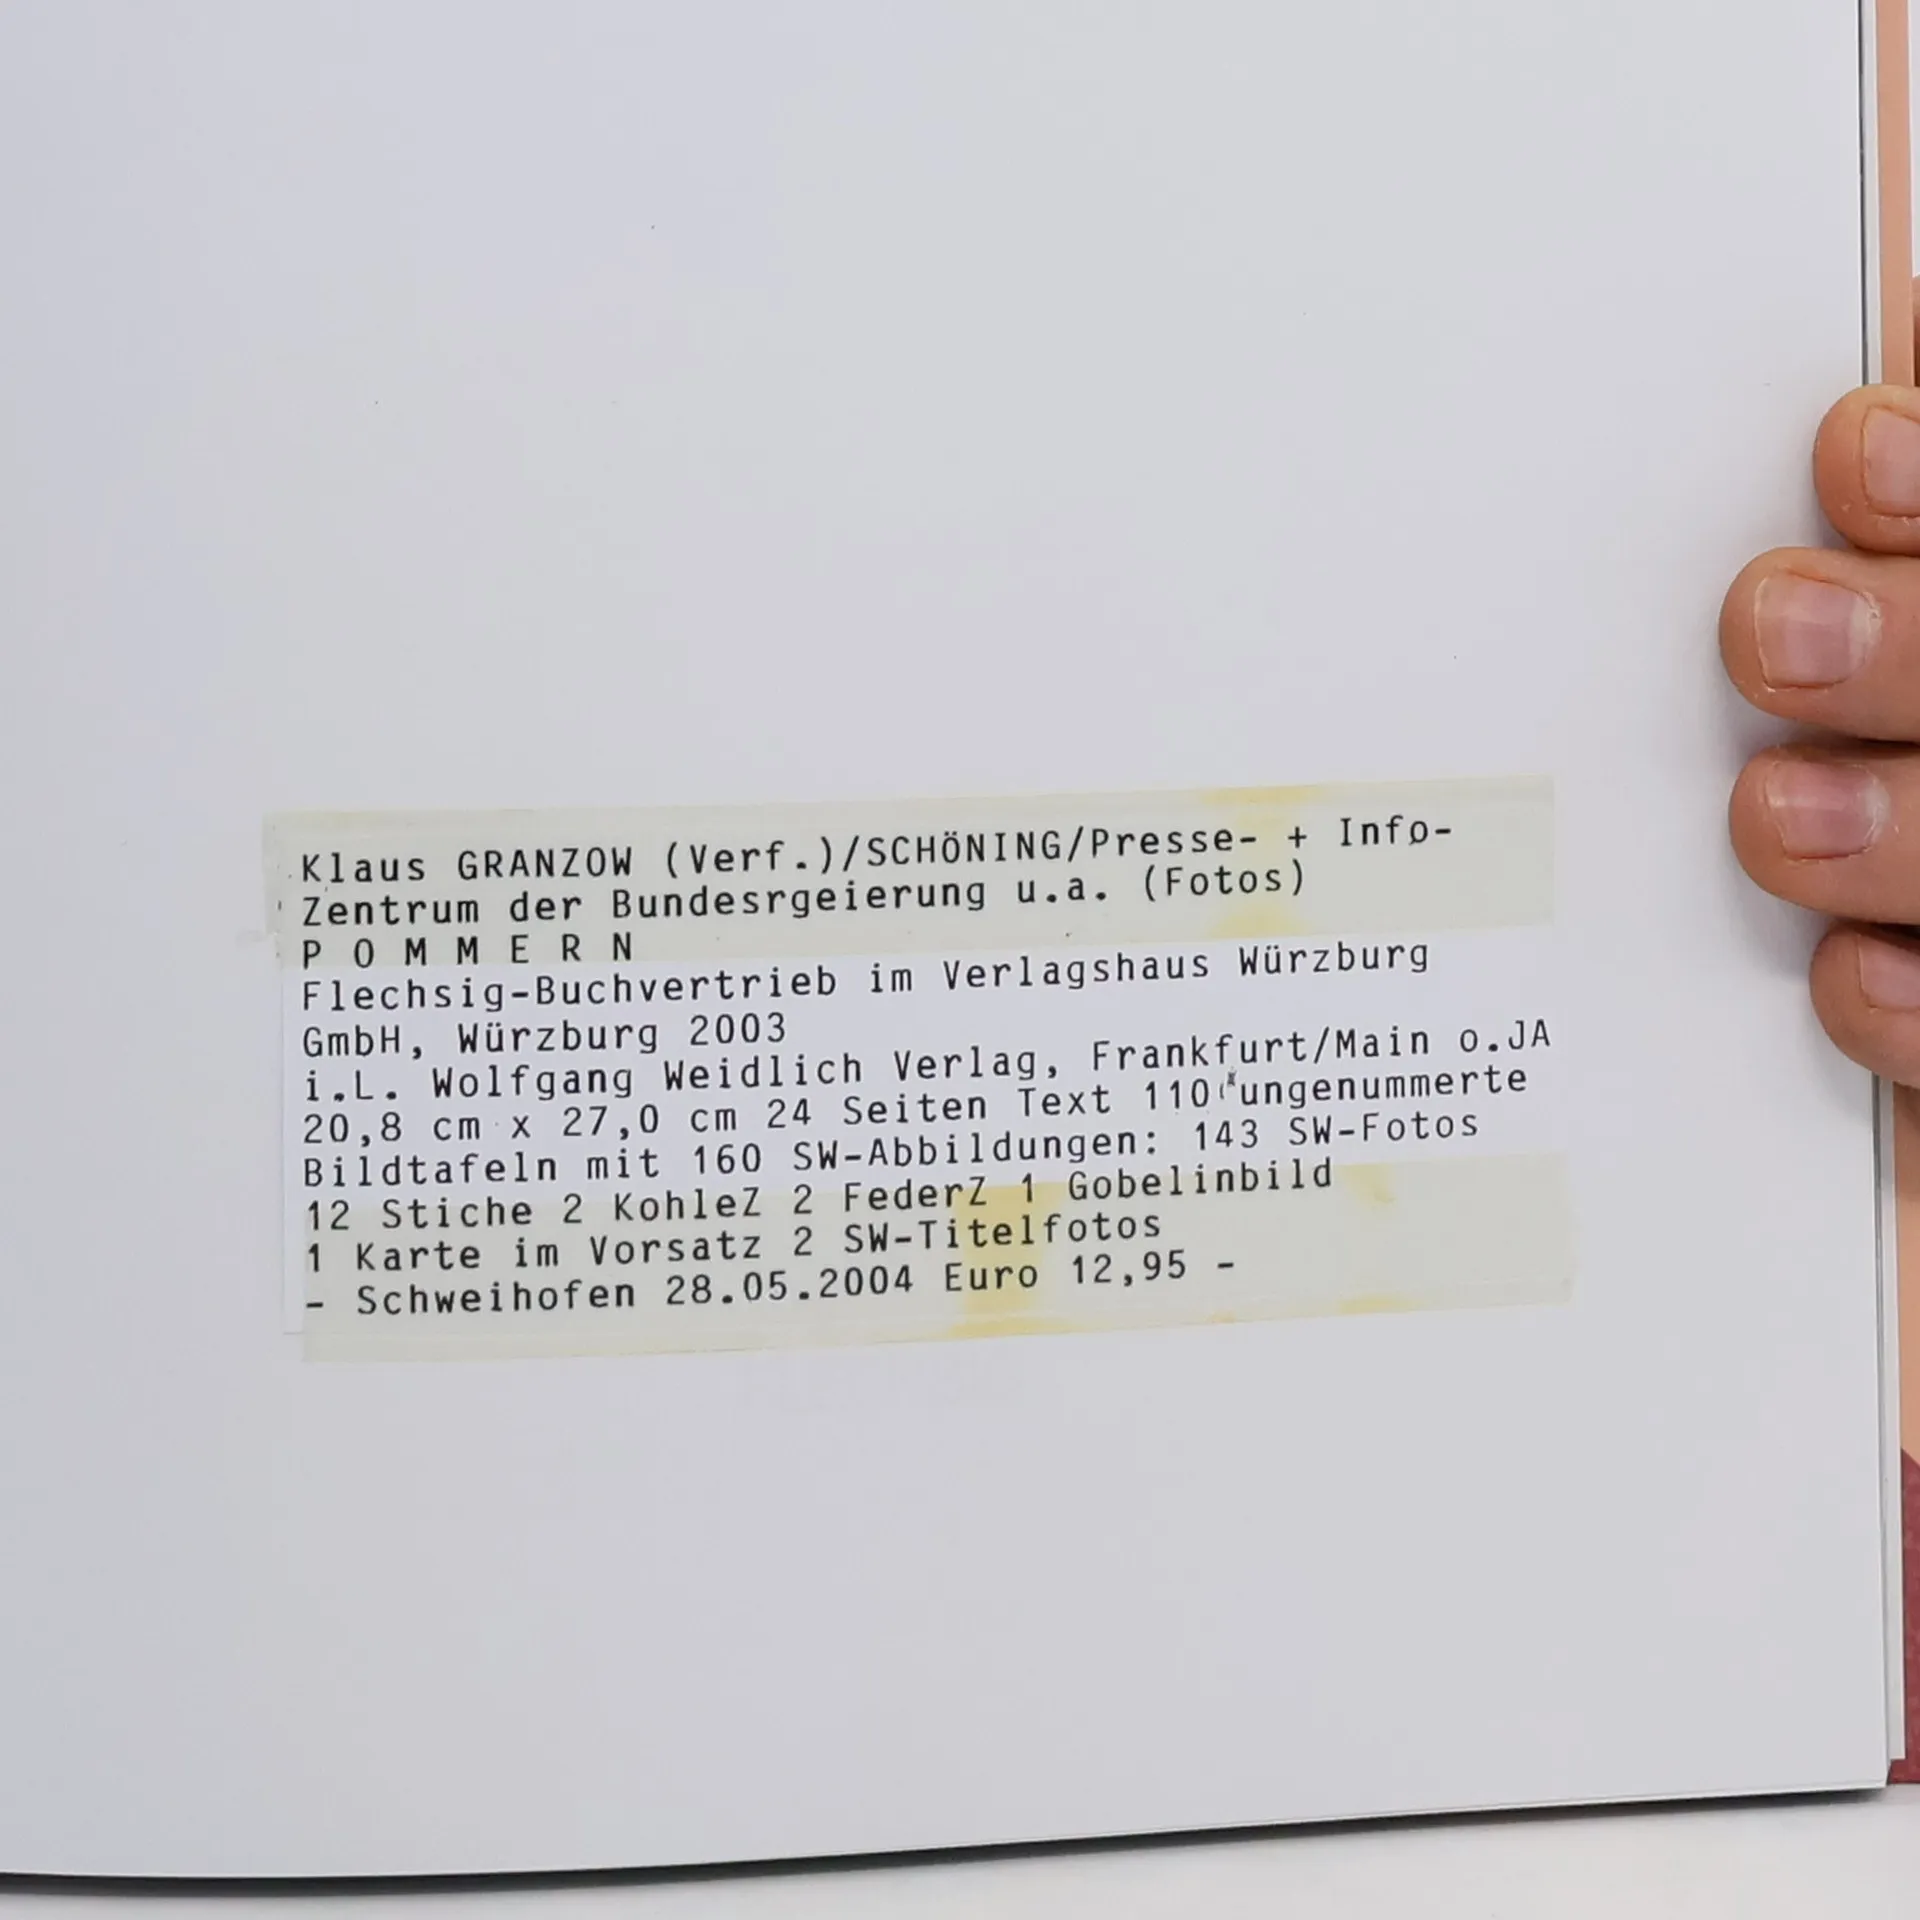 Klaus GRANZOW (Verf.)/SCHÖNING/Presse- + Info-
Zentrum der Bundesrgeierung u.a. (Fotos)
P O M M E R N
Flechsig-Buchvertrieb im Verlagshaus Würzburg
GmbH, Würzburg 2003
i.L. Wolfgang Weidlich Verlag, Frankfurt/Main o.JA
20,8 cm x 27,0 cm 24 Seiten Text 110 ungenummerte
Bildtafeln mit 160 SW-Abbildungen: 143 SW-Fotos
12 Stiche 2 KohleZ 2 FederZ 1 Gobelinbild
1 Karte im Vorsatz 2 SW-Titelfotos
- Schweihofen 28.05.2004 Euro 12,95 -